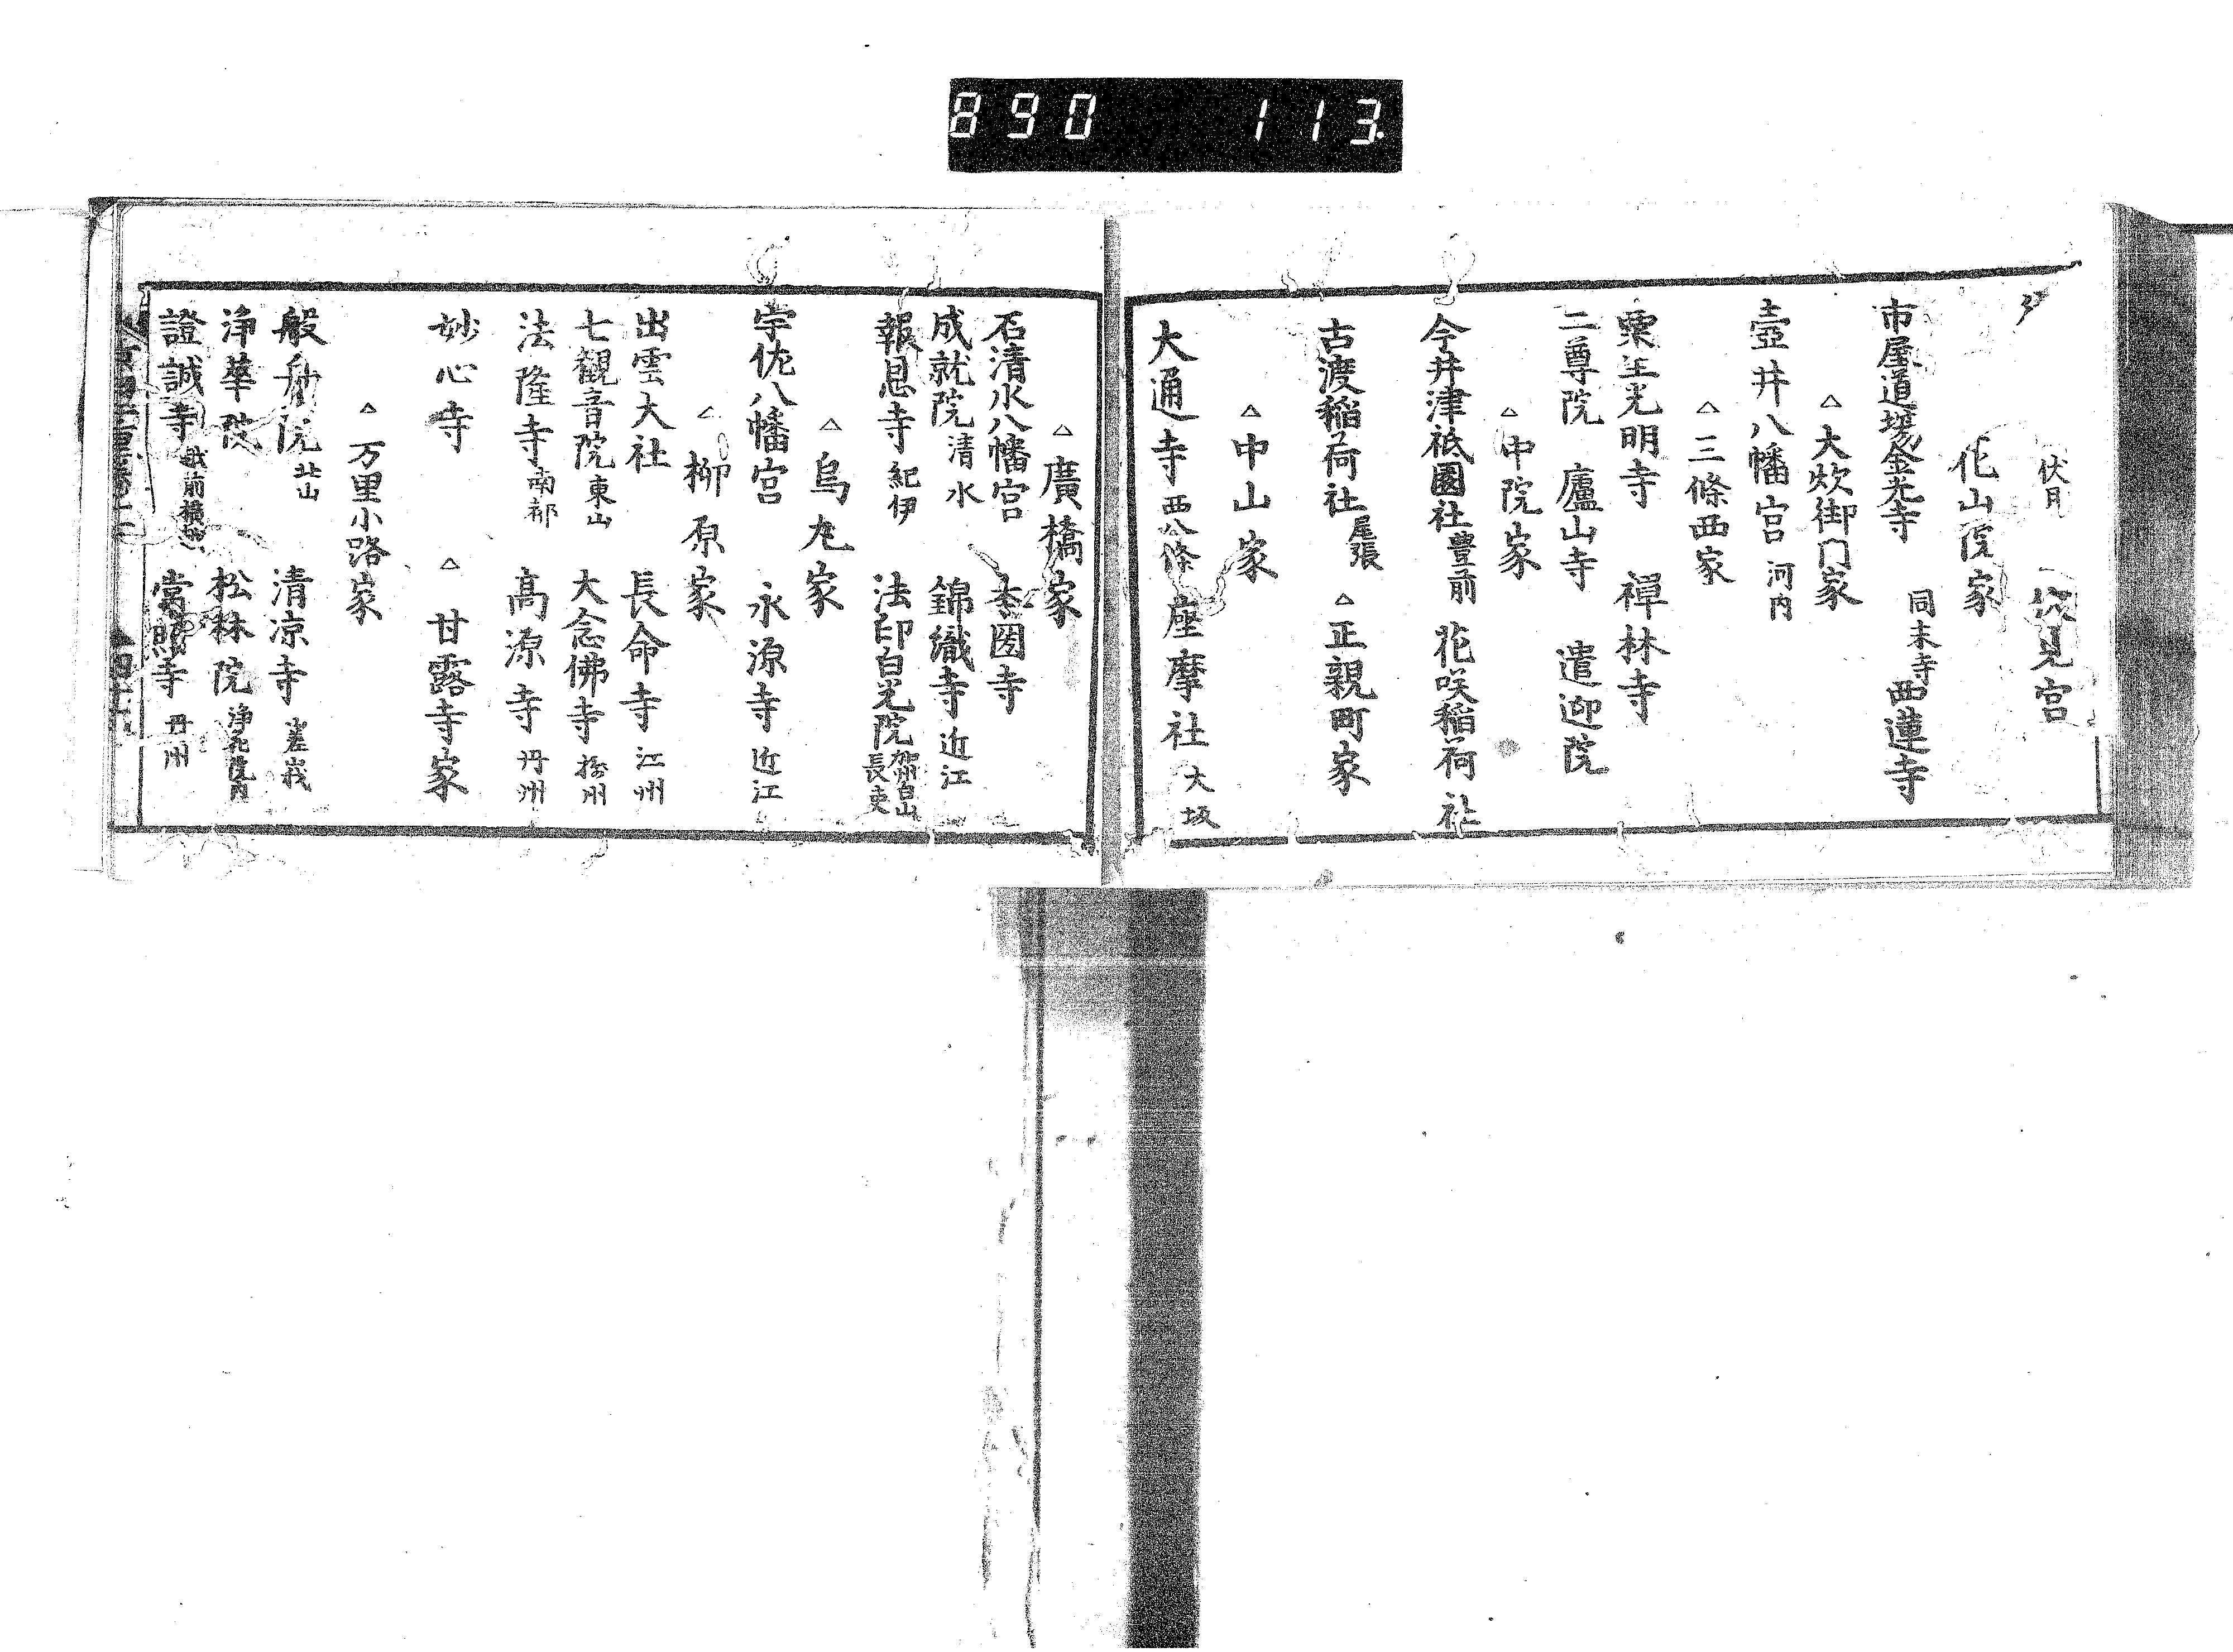 890 113
伏見宮
花山院家
市屋道場金光寺 同末寺 西蓮寺
△大炊御門家
壺井八幡宮 河内
△三條西家
粟生光明寺 禅林寺
二尊院 廬山寺 遣迎院
△中院家
今井津祇園社 豊前 花咲稲荷社
古渡稲荷社 尾張 △正親町家
△中山家
大通寺 西八條 座摩社 大坂
△廣橋家
石清水八幡宮 本圀寺
成就院 清水 錦織寺 近江
報恩寺 紀伊 法印白光院 加州白山長吏
△烏丸家
宇佐八幡宮 永源寺 近江
△柳原家
出雲大社 長命寺 江州
七観音院 東山 大念佛寺 摂州
法隆寺 南都 高源寺 丹州
妙心寺 △甘露寺家
△万里小路家
般舟院 北山 清凉寺 嵯峩
浄華院 松林院 浄花院内
證誠寺 越前横越 常照寺 丹州